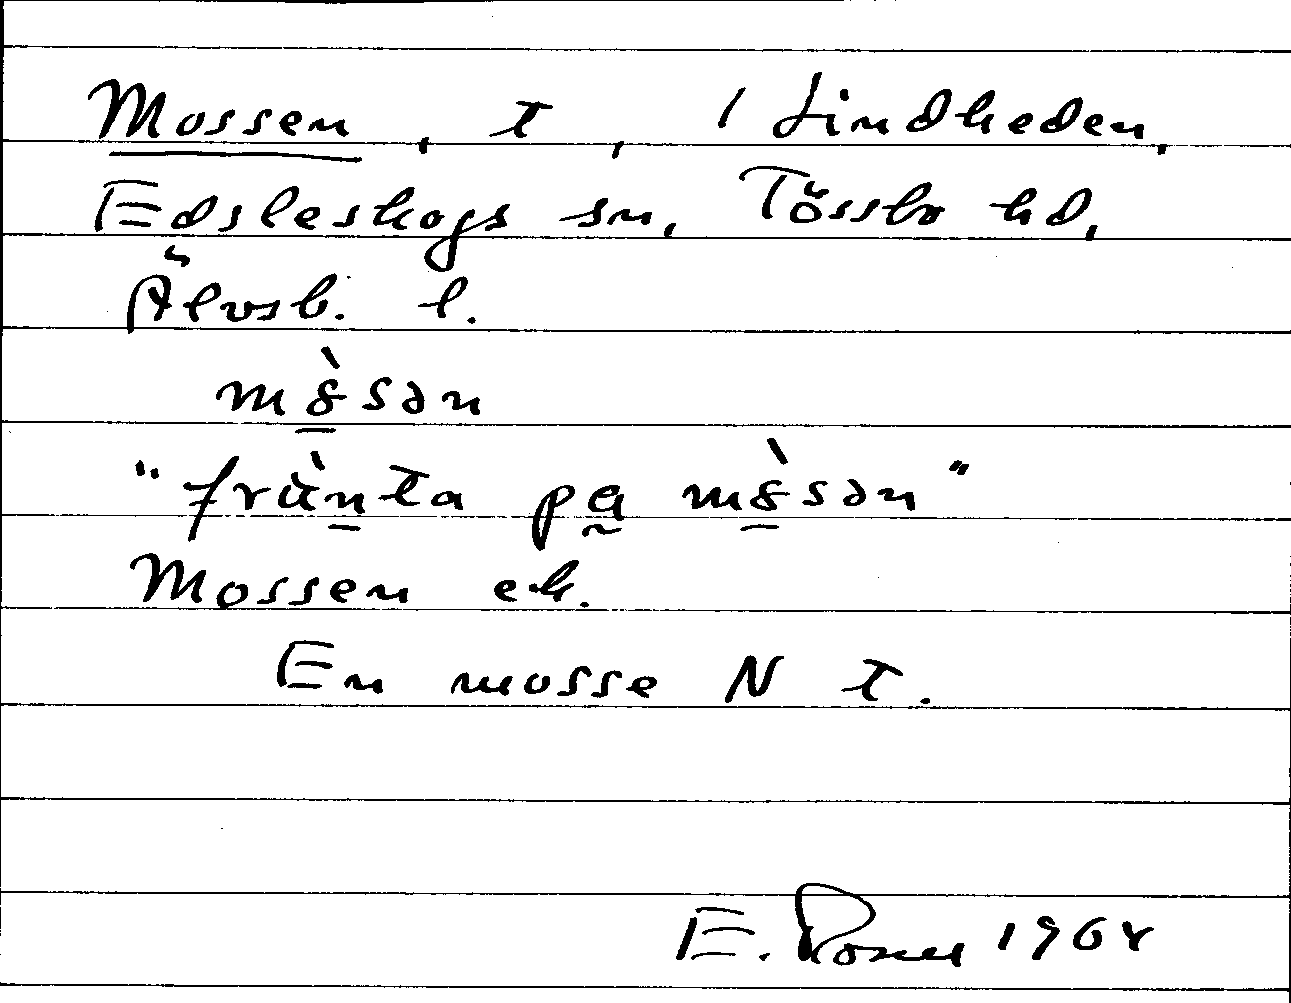 Mossen, t, 1 Lindheden,
Edsleskogs sn, Tössbo hd,
Älvsb. l.
mòsən
"frànta pa mòsən"
Mossen ek.
En mosse N t.
E. 1964